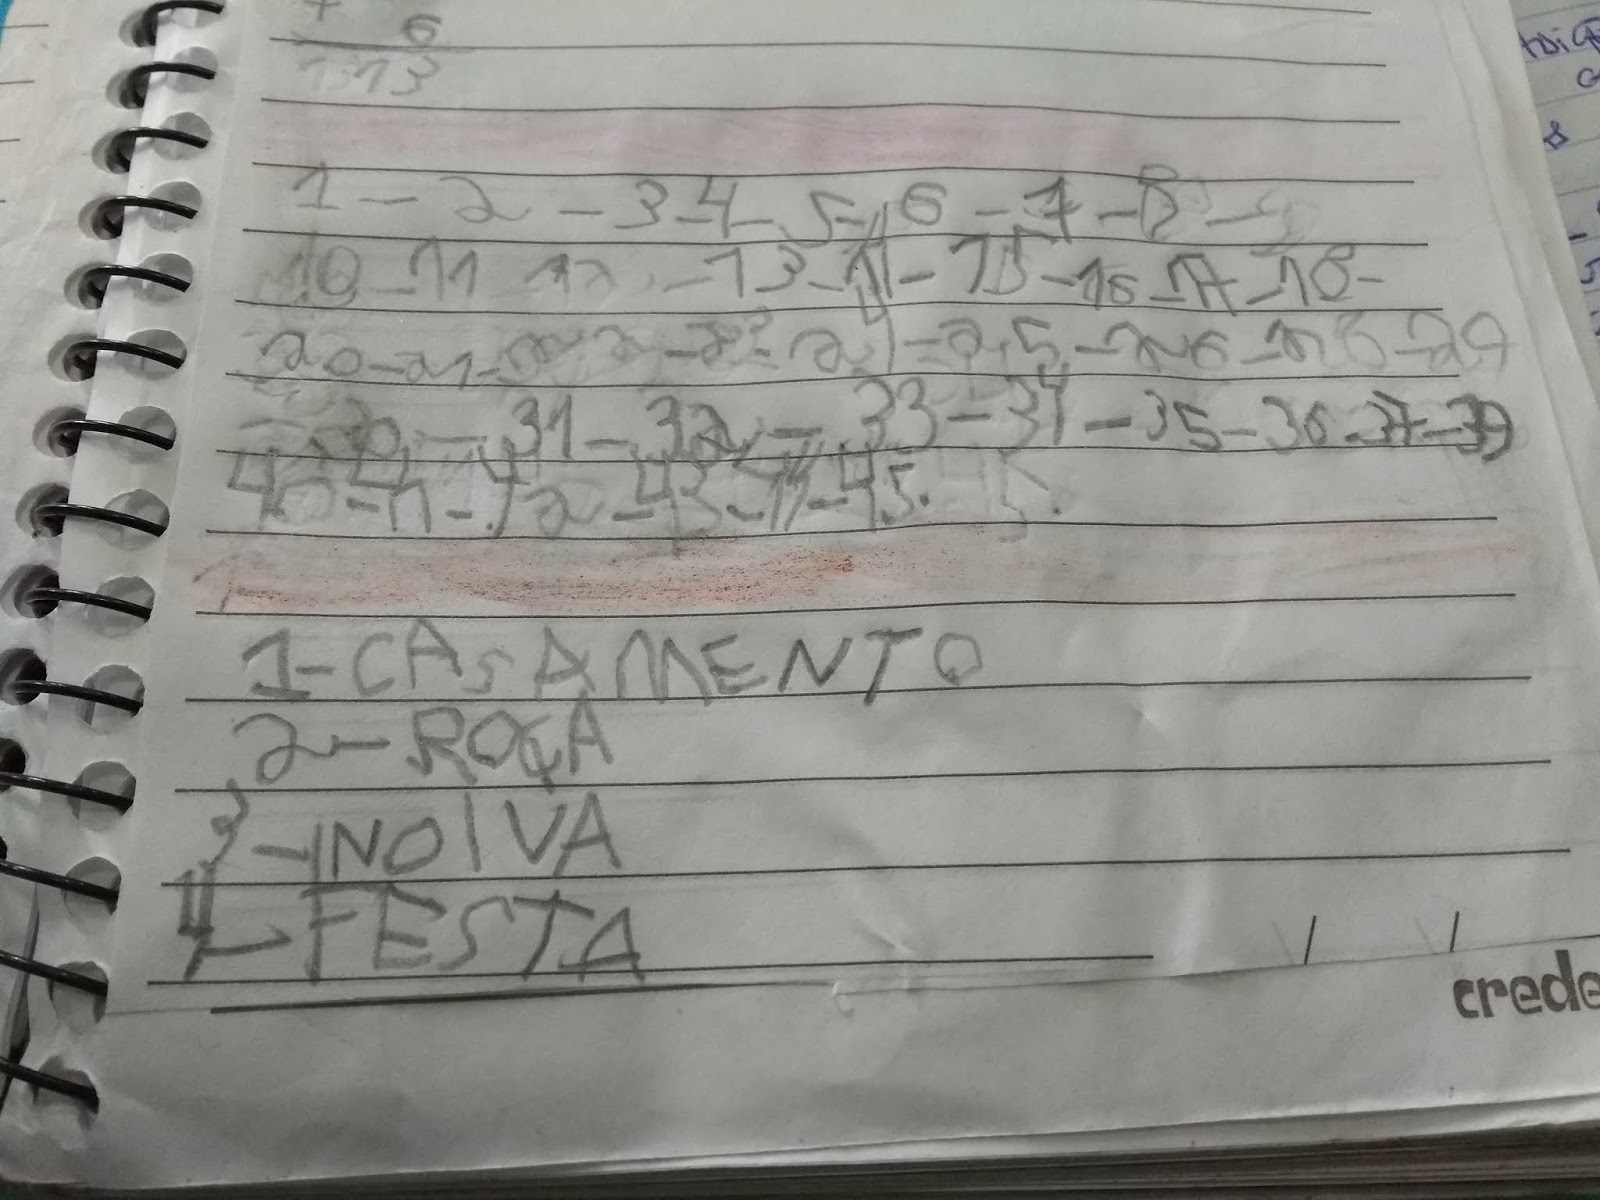 + 6
13
1 - 2 - 3 - 4 - 5 - 6 - 7 - 8 - 9
10 - 11 - 12 - 13 - 14 - 15 - 16 - 17 - 18 -
20 - 21 - 22 - 23 - 24 - 25 - 26 - 28 - 29
30 - 31 - 32 - 33 - 34 - 35 - 36 - 37 - 39
40 - 41 - 42 - 43 - 44 - 45.
1 - CASAMENTO
2 - ROÇA
3 - NOIVA
4 - FESTA
crede